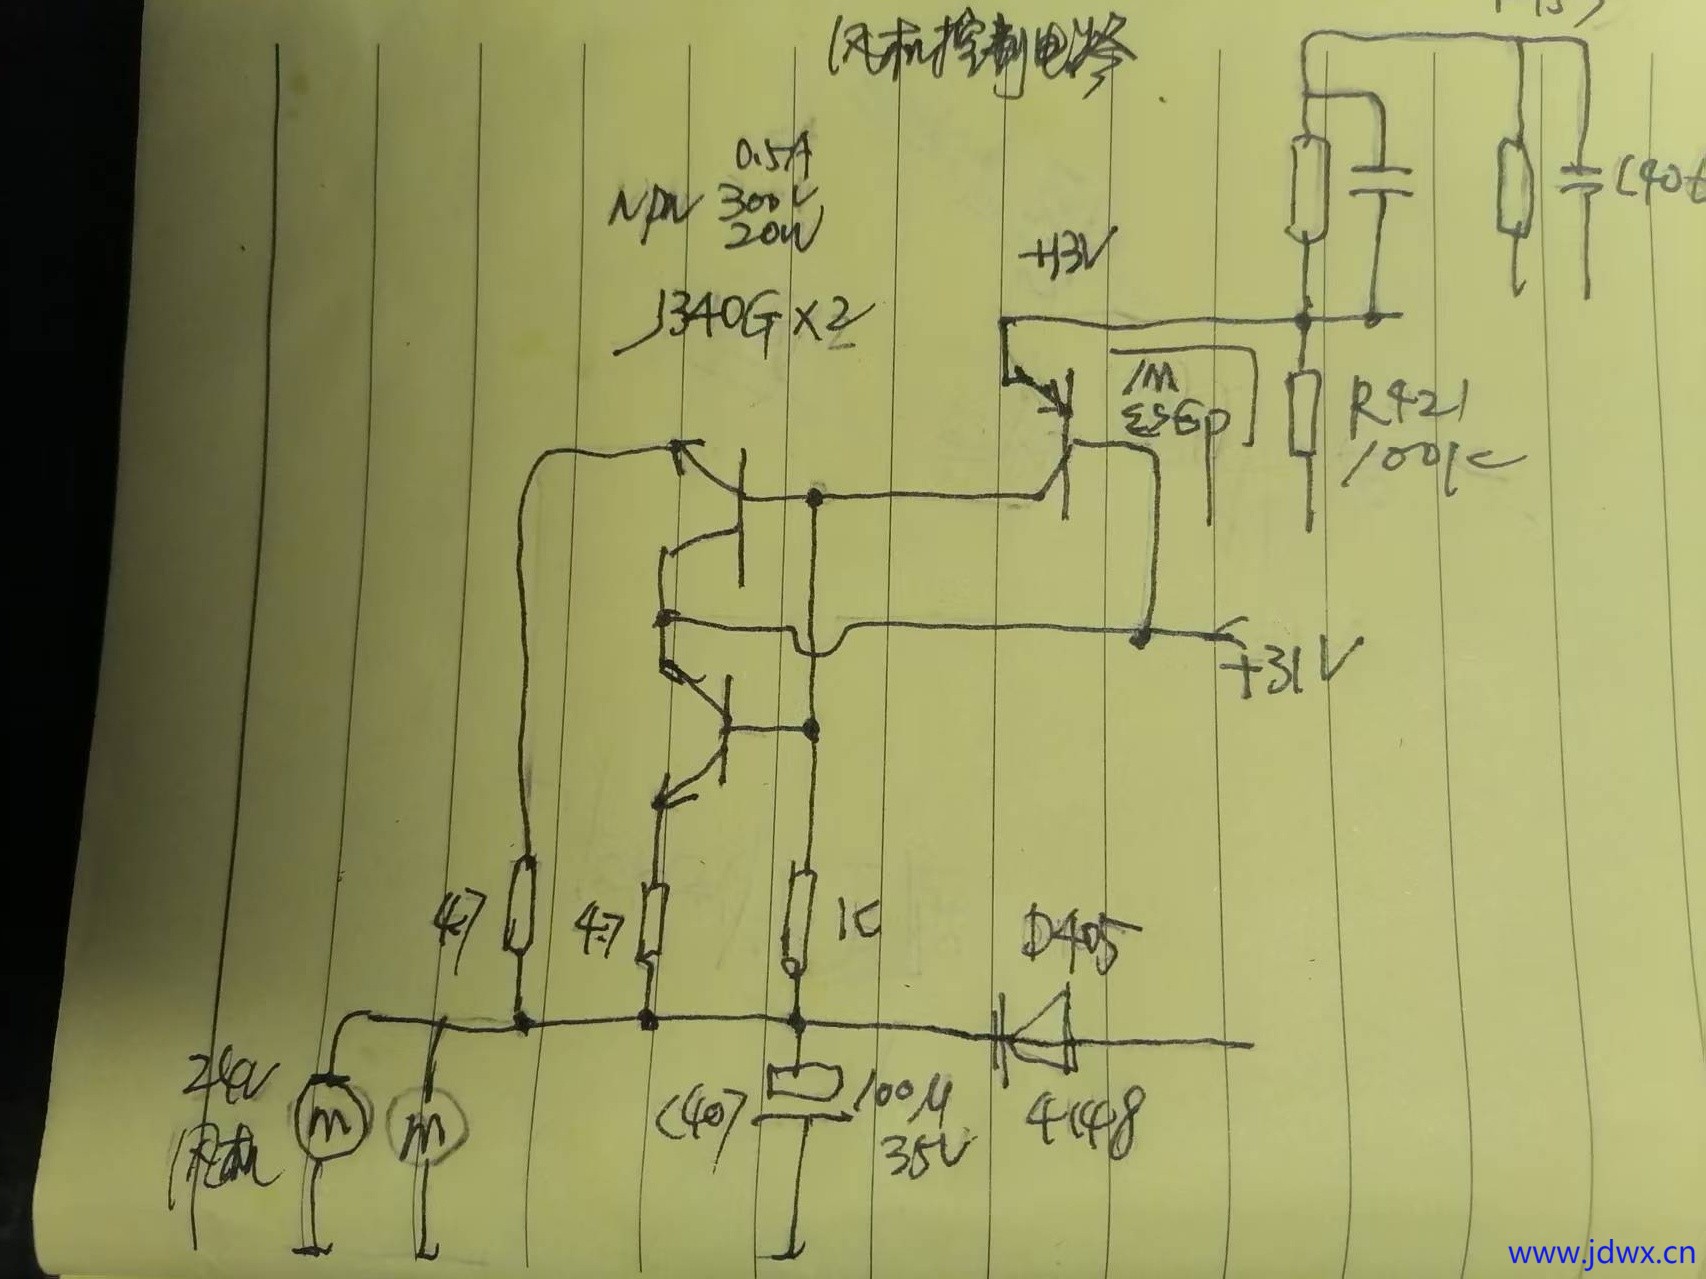 风机控制电路
0.5A
NPN 300V
20W
J340G X2
+13V
1M
R421
100K
+31V
47
47
1K
D405
4148
C407
100μ
35V
24V
风机
M
M
www.jdwx.cn